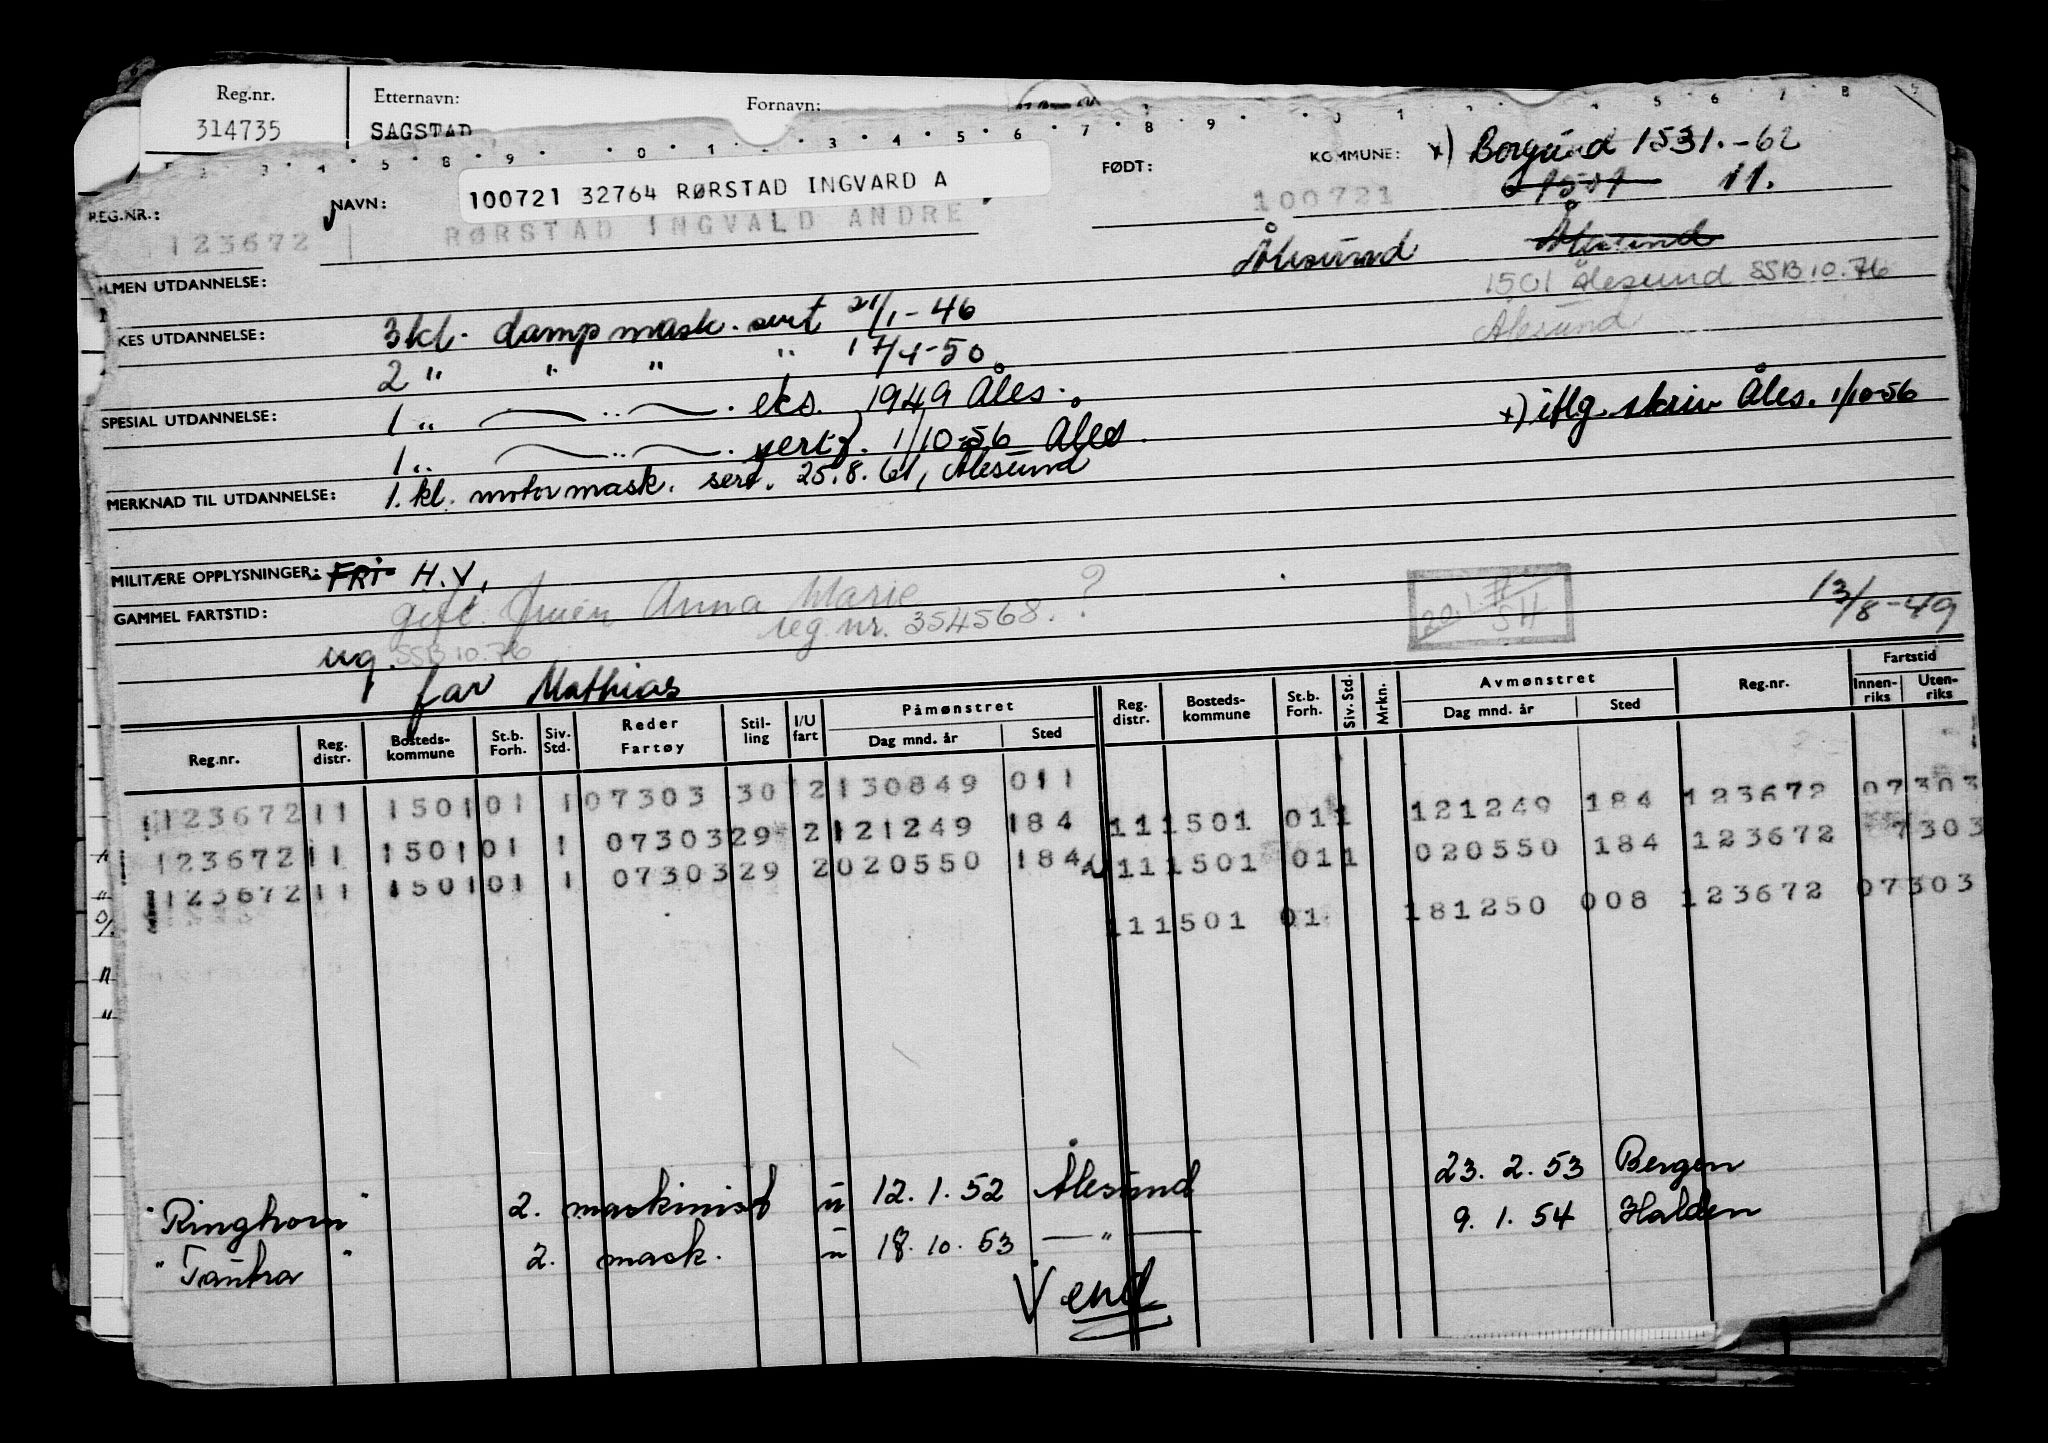 Reg.nr. Etternavn: Fornavn:
314735 SAGSTAD
REG.NR.: NAVN: 100721 32764 RØRSTAD INGVARD A FØDT: KOMMUNE: x) Borgund 1531.-62
123672 RØRSTAD INGVALD ANDRE 100721 1501 11.
Ålesund Ålesund
LMEN UTDANNELSE: 1501 Ålesund SSB 10.76
Ålesund
KES UTDANNELSE: 3 kl. damp mask. sert 21/1-46
2 " " " " 17/1-50
SPESIAL UTDANNELSE: 1 " eks. 1949 Åles.
x) iflg skriv Åles. 1/10-56
1 " sertf. 1/10-56 Åles.
MERKNAD TIL UTDANNELSE: 1. kl. motormask. sert. 25.8.61, Ålesund
MILITÆRE OPPLYSNINGER: FRI H.V.
GAMMEL FARTSTID: gift. Anna Marie ? 13/8-49
reg.nr. 354568.
ug. SSB 10.76
far Mathias
Reg.nr. Reg. distr. Bosteds- kommune St.b. Forh. Siv. Std. Reder Fartøy Stil- ling I/U fart Påmønstret Dag mnd. år Sted Reg. distr. Bosteds- kommune St.b. Forh. Siv. Std. Mrkn. Avmønstret Dag mnd. år Sted Reg.nr. Fartstid Innen- riks Uten- riks
123672 11 1501 01 1 07303 30 2 130849 011 11 1501 01 1 121249 184 123672 07303
123672 11 1501 01 1 07303 29 2 121249 184 11 1501 01 1 020550 184 123672 7303
123672 11 1501 01 1 07303 29 2 020550 184 11 1501 01 181250 008 123672 07303
"Ringhorn" 2. maskinist u 12.1.52 Ålesund 23.2.53 Bergen
"Tautra" 2. mask. u 18.10.53 — " — 9.1.54 Halden
Vend